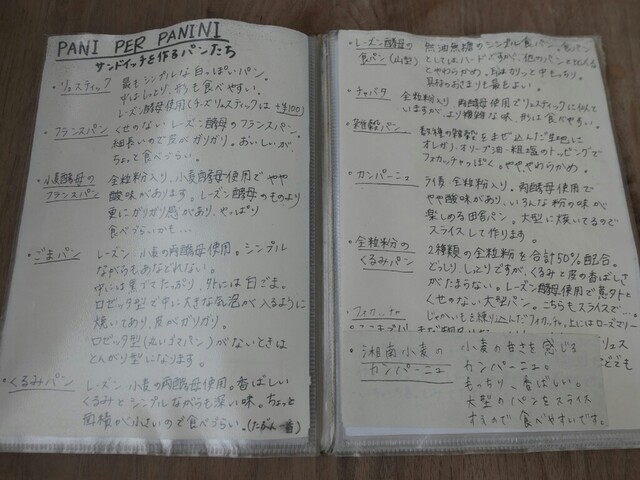 PANI PER PANINI
サンドイッチを作るパンたち
・リュスティック 最もシンプルな白っぽいパン。
中はしっとり、形も食べやすい。
レーズン酵母使用(チーズリュスティックは+¥100)
・フランスパン くせのない レーズン酵母のフランスパン。
細長いので皮がガリガリ。おいしいが
ちょっと食べづらい。
・小麦酵母の 全粒粉入り、小麦酵母使用でやや
フランスパン 酸味があります。レーズン酵母のものより
更にガリガリ感があり、やっぱり
食べづらいかも…
・ごまパン レーズン・小麦の両酵母使用。シンプル
ながらもあなどれない。
中には黒ごまたっぷり、外には白ごま。
ロゼッタ型で中に大きな気泡が入るように
焼いてあり、皮がガリガリ。
ロゼッタ型(丸いゴマパン)がないときは
とんがり型になります。
・くるみパン レーズン 小麦の両酵母使用。香ばしい
くるみとシンプルながらも深い味。ちょっと
面積が小さいので食べづらい。(たぶん一番)
・レーズン酵母の 無油無糖のシンプル食パン。食パン
食パン(山型) としてはハードですが、他のパンと比べると
やわらかめ。耳はカリッと中もっちり。
具材のおさまりも最もよい。
・チャバタ 全粒粉入り 両酵母使用でリュスティックに似て
いますが、より複雑な味、形は食べやすい。
・雑穀パン 数種の雑穀をまぜ込んだ生地に
オレガノ・オリーブ油・粗塩のトッピングで
フォカッチャっぽく。ややややわらかめ。
・カンパーニュ ライ麦 全粒粉入り。両酵母使用で
やや酸味があり、いろんな粉の味が
楽しめる田舎パン。大型に焼いてるので
スライスして作ります。
・全粒粉の 2種類の全粒粉を合計50%配合。
くるみパン どっしり、しっとりですが、くるみと皮の香ばしさ
がたまらない。レーズン酵母使用で意外と
くせのない大型パン。こちらもスライスで…。
・フォカッチャ じゃがいもを練り込んだフォカッチャ。上にはローズマリー
リュス
ども
・湘南小麦の 小麦の甘さを感じる
カンパーニュ カンパーニュ。
もっちり、香ばしい。
大型のパンをスライス
するので食べやすいです。